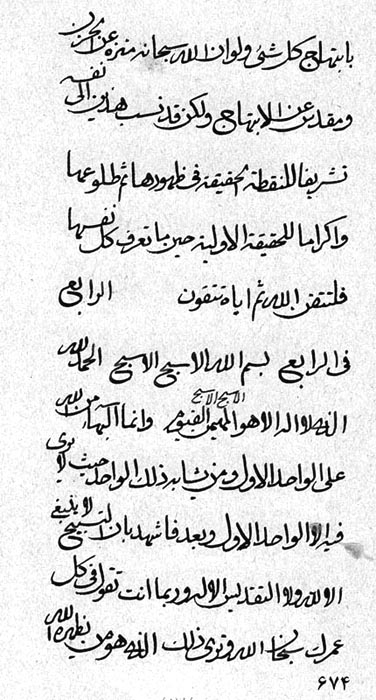 بابتهاج كل شئ ولو ان الله سبحانه منزه عن الحزن
ومقدس عن الابتهاج ولكن قد نسب هذين الى نفسه
تشريفا للنقطة الحقيقة فى ظهورها ثم طلوعها
واكراما للحقيقة الاولية حين ما تعرف كل نفسها
فلتتقن الله ثم اياه تتقون الرابع
فى الرابع بسم الله الاسبح الاسبح الحمد لله
الذى لا اله الا هو الاسبح الاسبح وانما البهاء من الله
على الواحد الاول ومن يشابه ذلك الواحد حيث لا يرى
فيه الا الواحد الاول وبعد فاشهد بان التسبيح لا ينبغى
الا لله ولا التقديس الا له وربما انت تقول فى كل
عمرك سبحان الله وترى ذلك الذى هو من يظهره الله
٦٧٤